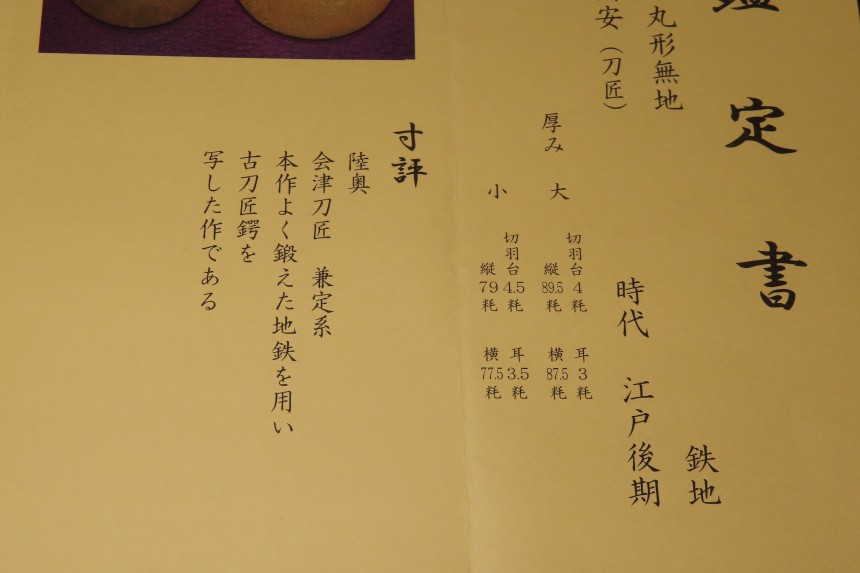 鑑定書
丸形無地
鉄地
安（刀匠）
時代 江戸後期
厚み 大 切羽台 4 粍 耳 3 粍
縦 89.5 粍 横 87.5 粍
小 切羽台 4.5 粍 耳 3.5 粍
縦 79 粍 横 77.5 粍
寸評
陸奥
会津刀匠 兼定系
本作よく鍛えた地鉄を用い
古刀匠鍔を
写した作である